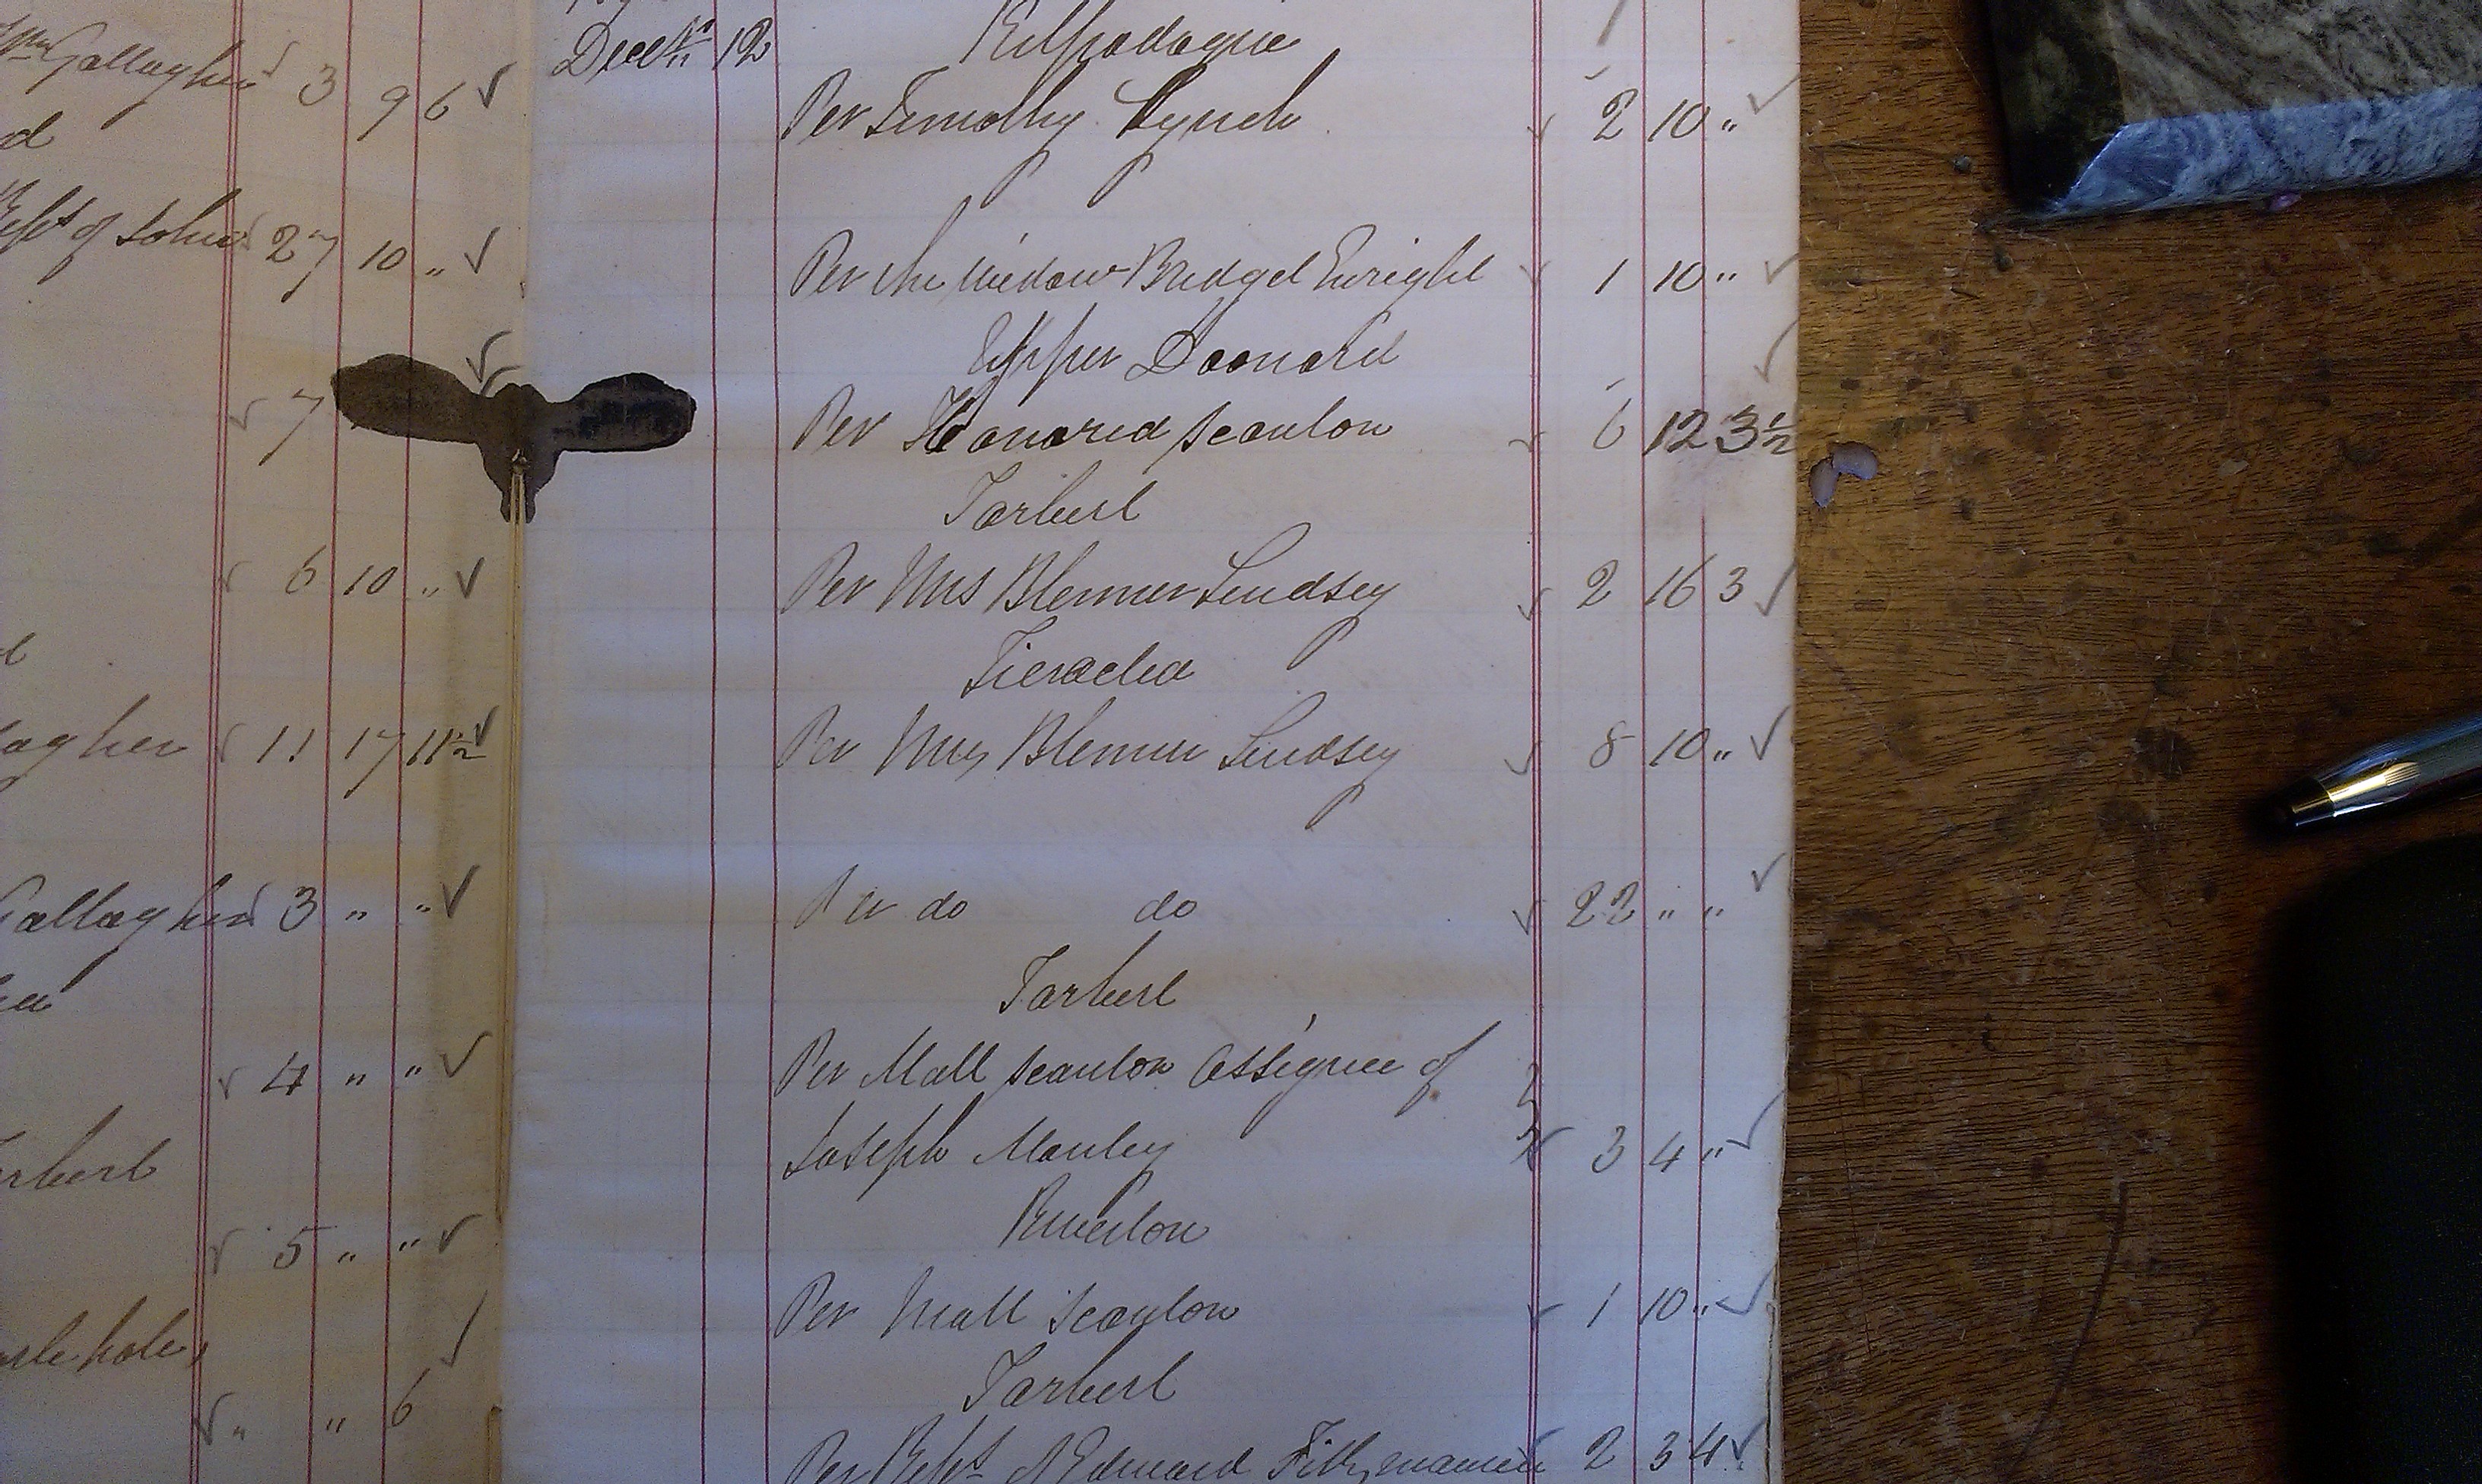 Wm Gallagher 3 9 6
d
Reps of John 27 10 "
7
6 10 "
agher 11 17 11½
Gallagher 3 " "
4 " "
arbert
5 " "
hole,
" " 6
Decr 12 Kilpadogue
Per Timothy Lynch 2 10 "
Per the Widow Bridget Enright 1 10 "
Upper Doonard
Per Honored Scanlon 6 12 3½
Tarbert
Per Mrs Blenner Lindsey 2 16 3
Tieraclea
Per Mrs Blenner Lindsey 8 10 "
Per do do 22 " "
Tarbert
Per Matt Scanlon Assignee of
Joseph Manley 3 4 "
Per Matt Scanlon 1 10 "
Tarbert
Per Reps of Edward Fitzmaurice 2 3 4